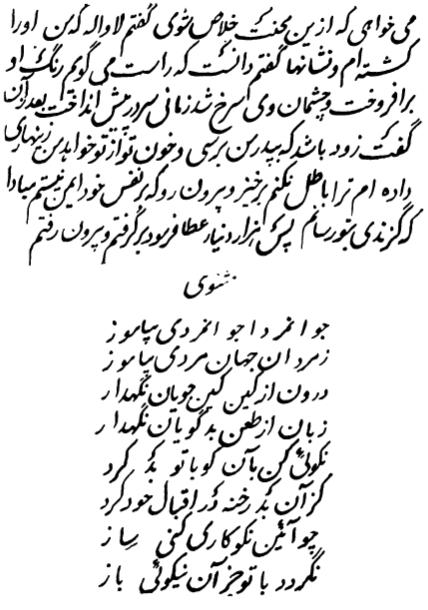 می خواهی که ازین محنت خلاص شوی گفتم لا والله که من او را
کشته ام و نشانها گفتم دانست که راست می گویم رنگ او
برافروخت و چشمان وی سرخ شد زمانی سر در پیش انداخت بعد از آن
گفت زود باشد که بپدر من برسی و خون تو از تو خواهد من زینهاری
داده ام ترا باطل نکنم برخیز و بیرون رو که بر نفس خود ایمن نیستم مبادا
که گزندی بتو رسانم پس هزار دینار عطا فرمود برگرفتم و بیرون رفتم
مثنوی
جوانمردا جوانمردی بیاموز
ز مردان جهان مردی بیاموز
درون از کین کین جویان نگهدار
زبان از طعن بدگویان نگهدار
نکوئی کن بآن کو با تو بد کرد
کز آن بد رخنه در اقبال خود کرد
چو آئین نکوکاری کنی ساز
نگردد با تو جز آن نیکوئی باز